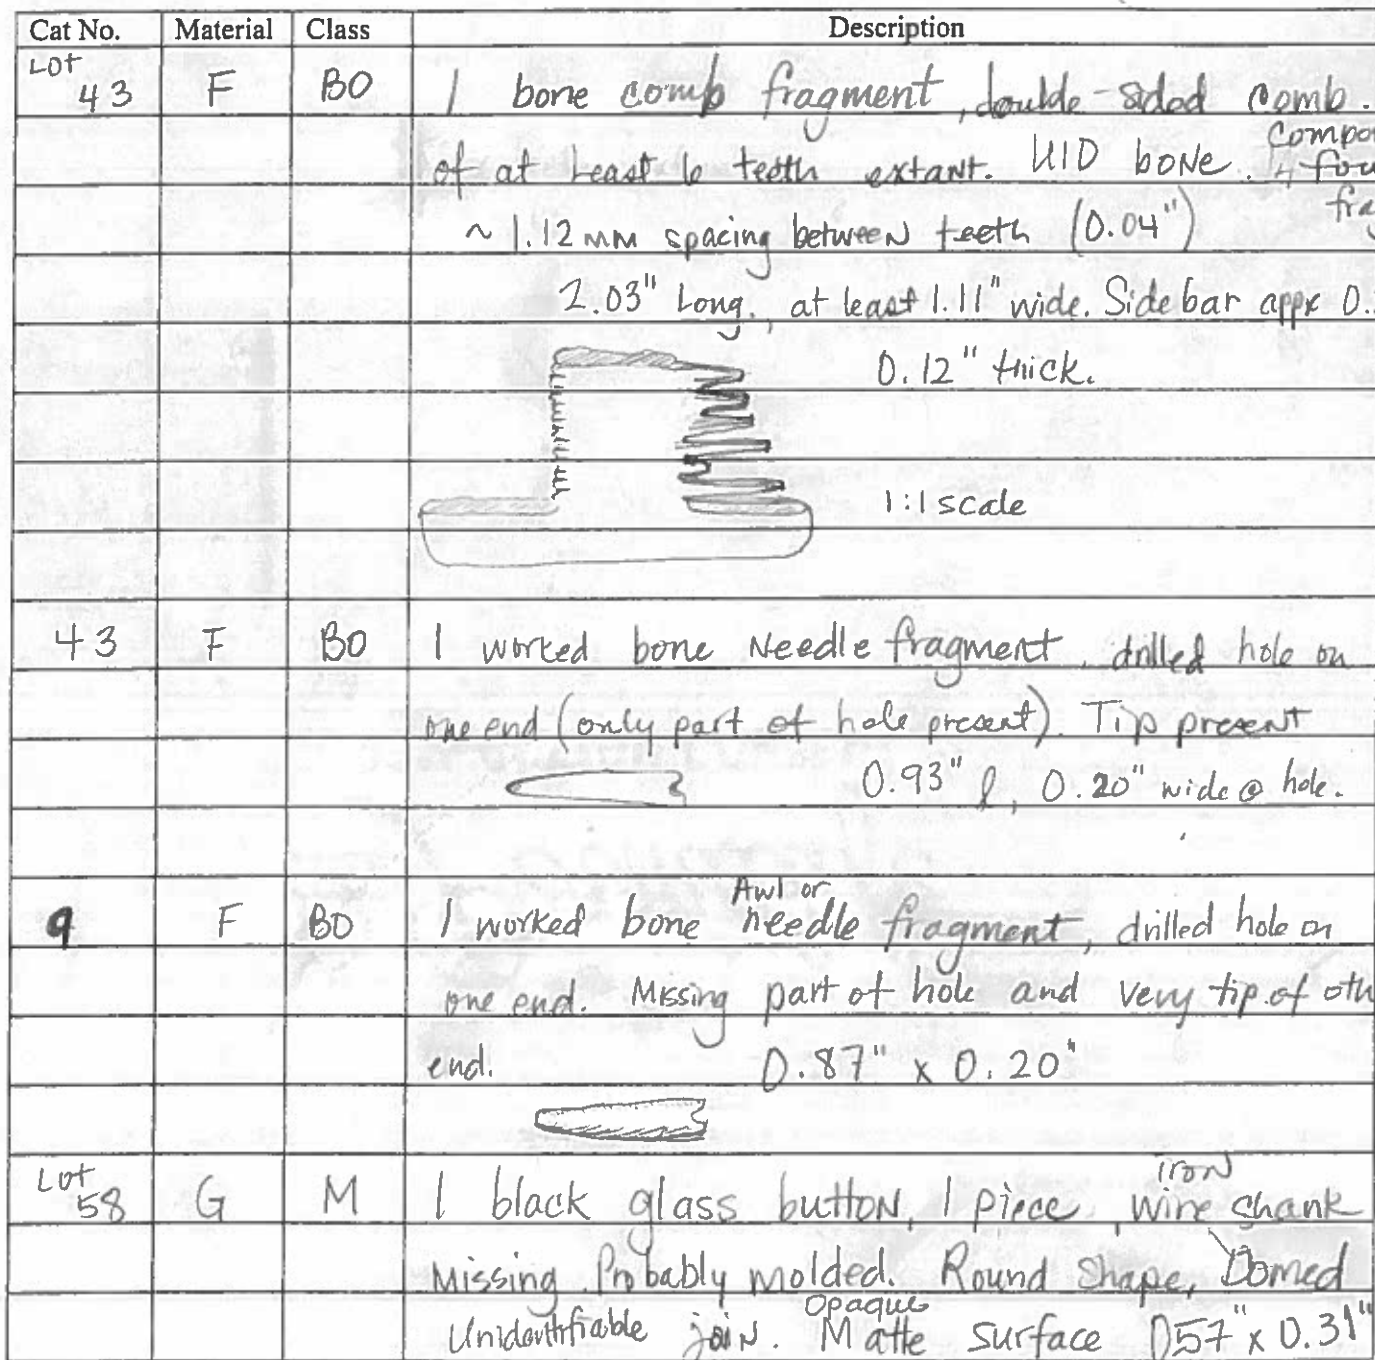 Cat No. Material Class Description
Lot
43 F BO 1 bone comb fragment, double-sided comb.
of at least 6 teeth extant. UID bone.
~1.12 mm spacing between teeth (0.04")
2.03" Long, at least 1.11" wide. Side bar appx 0.
0.12" thick.
1:1 scale
43 F BO 1 worked bone Needle fragment, drilled hole on
one end (only part of hole present). Tip present
0.93" l, 0.20" wide @ hole.
Awl or
9 F BO 1 worked bone needle fragment, drilled hole on
one end. Missing part of hole and very tip of oth
end. 0.87" x 0.20"
Lot iron
58 G M 1 black glass button, 1 piece, wire shank
Missing. Probably molded. Round shape, Domed
Opaque
Unidentifiable join. Matte surface 0.57" x 0.31"